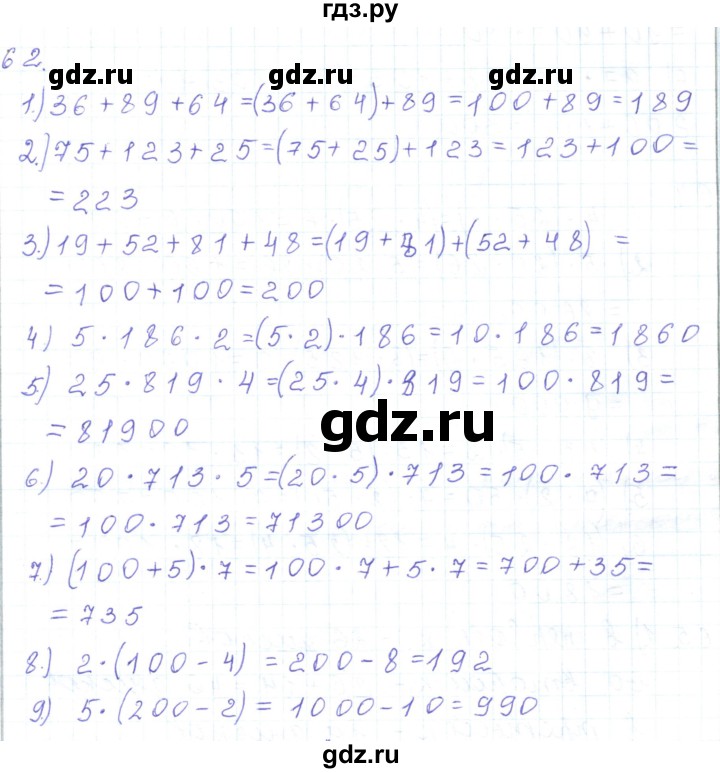 гдз.ру
62.
gdz.ru gdz.ru
1.) 36 + 89 + 64 = (36 + 64) + 89 = 100 + 89 = 189
2.) 75 + 123 + 25 = (75 + 25) + 123 = 123 + 100 =
= 223
3.) 19 + 52 + 81 + 48 = (19 + 81) + (52 + 48) =
= 100 + 100 = 200
4) 5 · 186 · 2 = (5 · 2) · 186 = 10 · 186 = 1860
5) 25 · 819 · 4 = (25 · 4) · 819 = 100 · 819 =
= 81900
gdz.ru
6) 20 · 713 · 5 = (20 · 5) · 713 = 100 · 713 =
= 100 · 713 = 71300
7) (100 + 5) · 7 = 100 · 7 + 5 · 7 = 700 + 35 =
= 735
8.) 2 · (100 - 4) = 200 - 8 = 192
9) 5 · (200 - 2) = 1000 - 10 = 990
gdz.ru